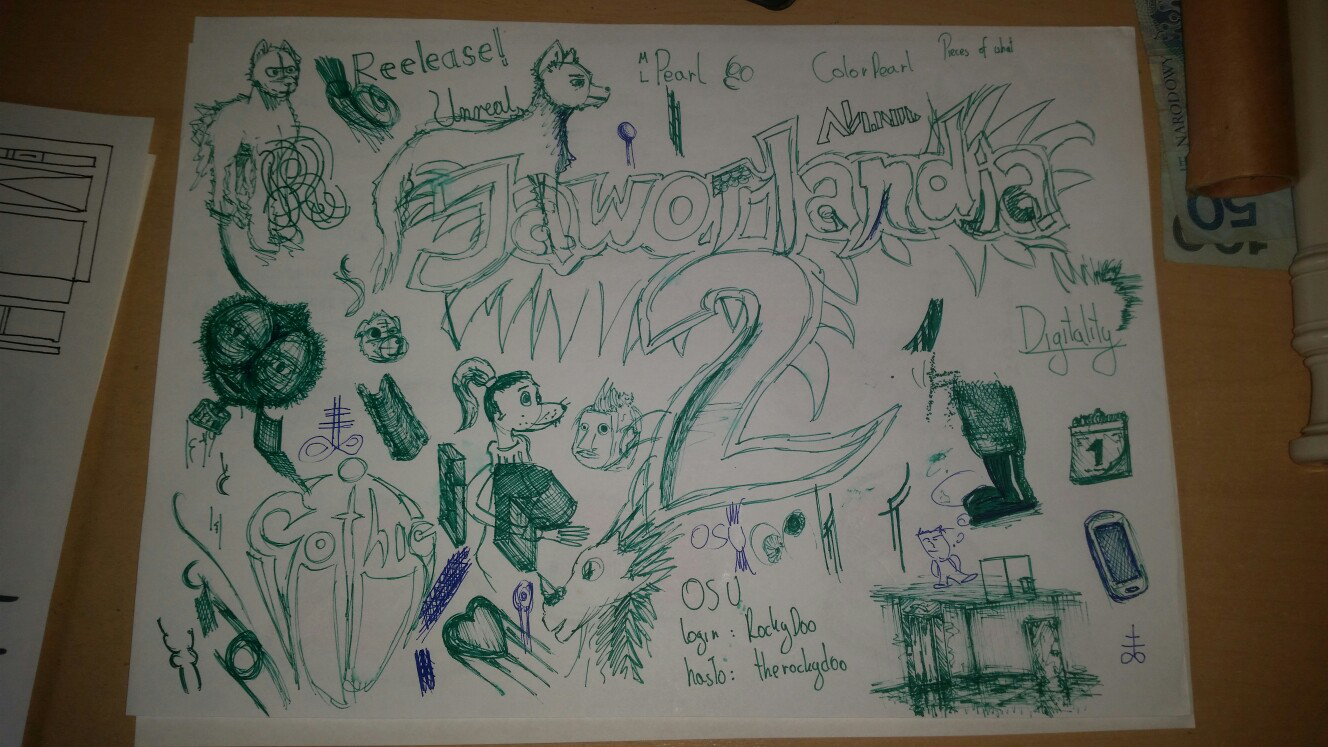 Reelease!
Unreal
ML Pearl
ColorPearl
Pieces of what
Jaworlandia
2
Digitality
Gothic
1
OSU
OSU
login : RockyDoo
hasło : therockydoo
NARODOWY
50